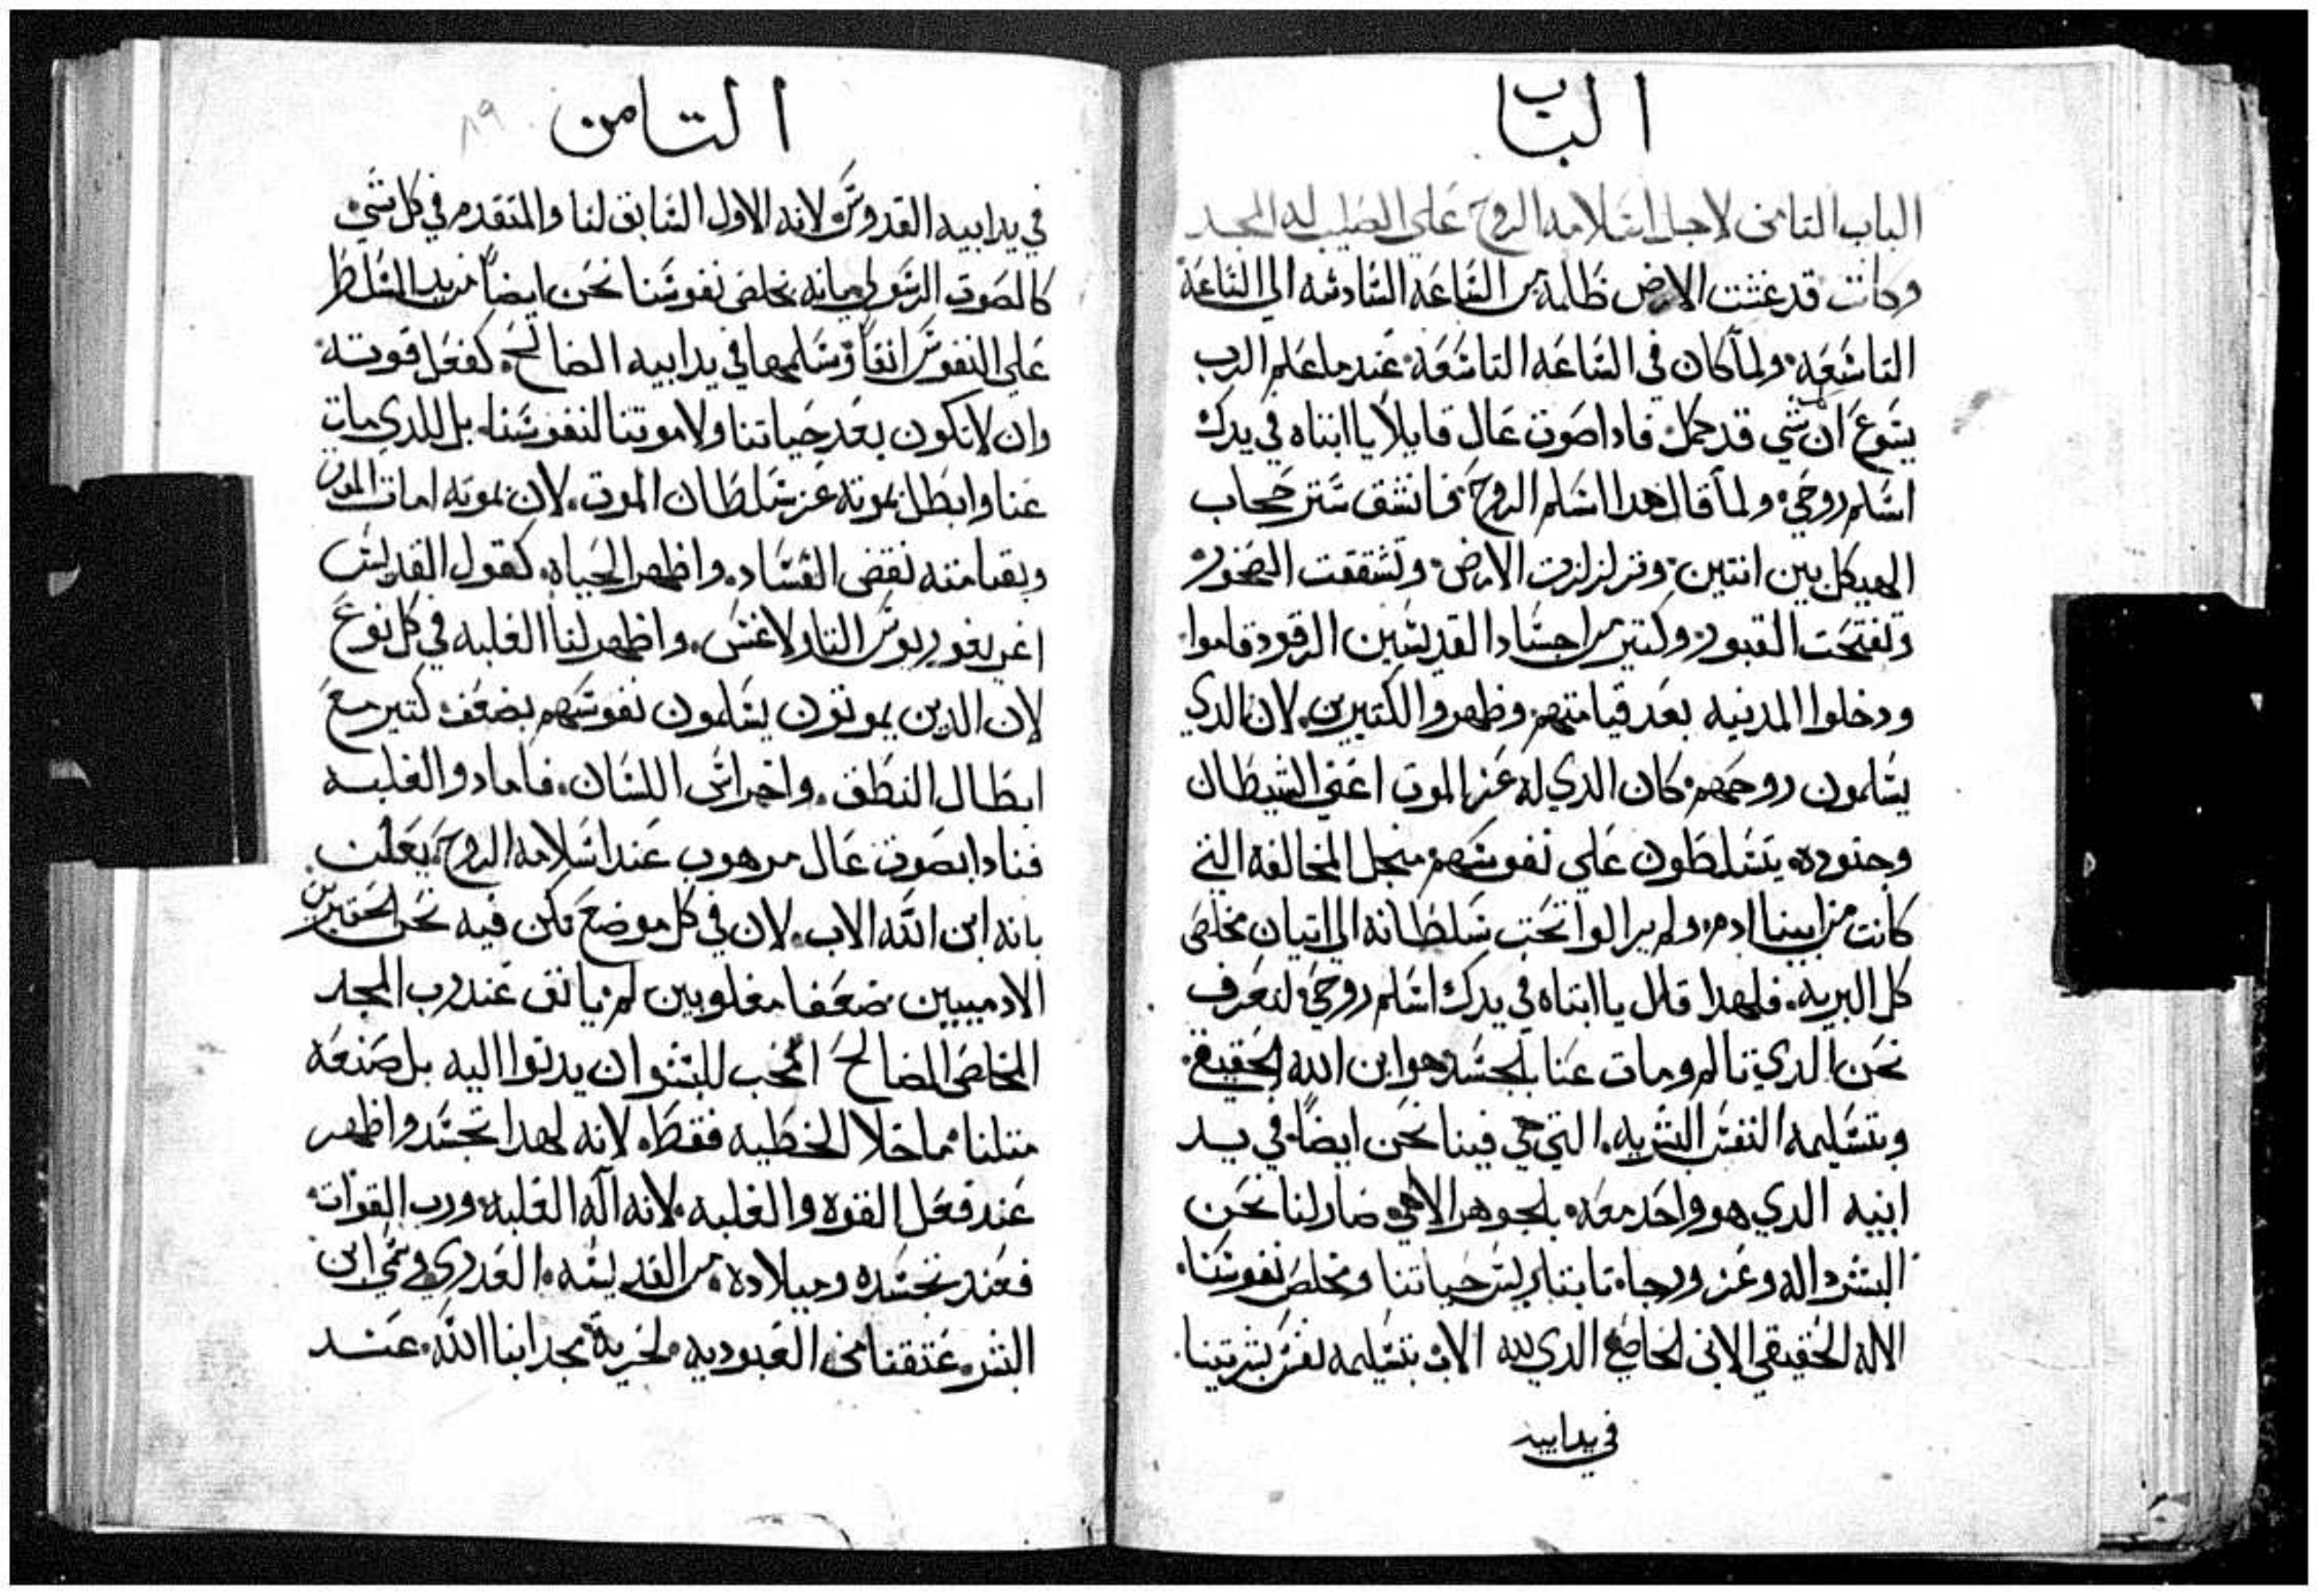 الباب
الباب التامن لاجل اسلامه الروح علي الصليب له المجد
وكانت قد غشت الارض ظلمه من الساعه السادسه الي الساعة
التاسعه. ولما كان في الساعه التاسعه. عندما علم الرب
يسوع ان شي قد كمل فادا صوت عال قايلاً يا ابتاه في يدك
اسلم روحي. ولما قال هدا اسلم الروح. فانشق ستر حجاب
الهيكل بين اتنتين. وتزلزلزت الارض. وتشققت الصخور
وتفتحت القبور. وكتير من اجساد القديسين الرقود قاموا.
ودخلوا المدنيه بعد قيامتهم. وظهروا الكتيرين. لان الدي
يسلمون روحهم. كان الدي له عز الموت اعني الشيطان
وجنوده. يتسلطون علي نفوسهم منجل المخالفه التي
كانت من ابينا ادم. ولم يزالوا تحت سلطانه الي اتيان مخلص
كل البريه. فلهدا قال يا ابتاه في يدك اسلم روحي. لنعرف
نحن الدي تالم ومات عنا بالجسد هو ابن الله الحقيقي.
وبتسليمه النفس البشريه. التي هي فينا نحن ايضاً. في يد
ابيه الدي هو واحد معه. بالجوهر الالاهي. صار لنا نحن
البشر داله وعز ورجاء. تابتا رييس حياتنا ومخلص نفوسنا.
الاله الحقيقي الابن الخاضع الدي لله الاب بتسليمه نفس بشريتنا.
في يد ابيه
التامن
٨٩
في يد ابيه القدوس. لانه الاول السابق لنا والمتقدم في كل شي.
كالصوت الرسولي. بانه يخلص نفوسنا نحن ايضاً من يد المتسلط
علي النفوس انفاً وسلمها في يد ابيه الصالح. كفعل قوته.
وان لا نكون بعد حياتنا ولا موتنا لنفوسنا. بل للدي مات
عنا وابطل بموته عز سلطان الموت. لان بموته امات الموت
وبقيامته نقض الفساد. واظهر الحياه. كقول القديس
اغريغوريوس التاولاغس. واظهر لنا الغلبه في كل نوع
لان الدين يموتون يسلمون نفوسهم بضعف كتير مع
ابطال النطق. واخراس اللسان. فاما دو الغلبه
فنادا بصوت عال مرهوب عند اسلامه الروح. يعلن
بانه ابن الله الاب. لان في كل موضع نكن فيه نحن الحقيرين
الادمييين ضعفا مغلوبين لم يانق عند رب المجد
الخاضع الصالح المحب للبشر ان يدنوا اليه بل صنعه
متلنا. ماخلا الخطيه فقط. لانه لهدا تجسد واظهر
عند فعل القوه والغلبه. لانه اله الغلبه ورب القوات.
فعند تجسده وميلاده. من القديسه. العدري وسمي ابن
البشر. عتقنا من العبوديه. لحرية مجد ابنا الله. عند